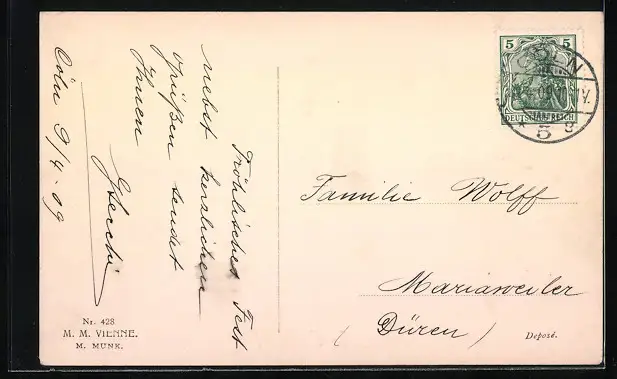 Cöln 9/4.09
Fröhliches Fest
nebst herzlichen
Grüßen sendet
Ihnen
Nr. 428
M. M. VIENNE.
M. MUNK.
5 5
DEUTSCHES REICH
CÖLN
5
Familie Wolff
Mariaweiler
(Düren)
Deposé.